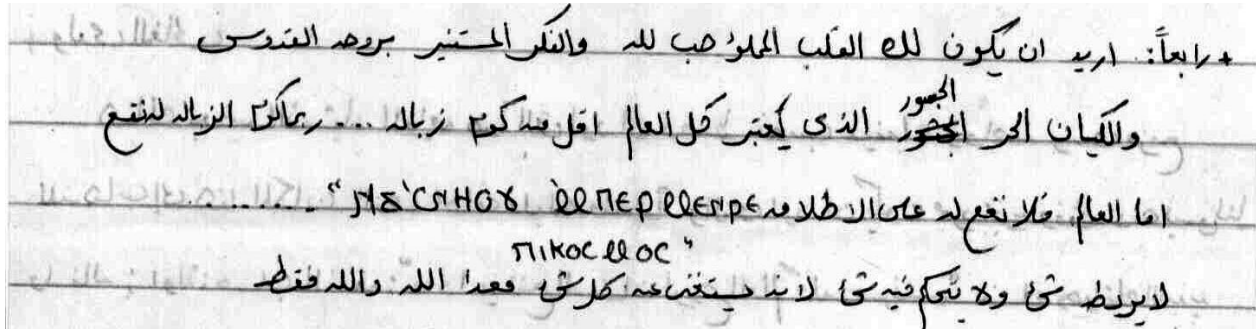 + رابعاً: اريد ان يكون لك القلب المملؤ حب لله والفكر المستنير بروحه القدوس
الجسور
والكيان الحر الذى يَعتبر كل العالم اقل من كوم زباله ... ربما كوم الزباله له نفع
اما العالم فلا نفع له على الاطلاق "ⲚⲀ̀ⲤⲚⲎⲞⲨ ⲘⲠⲈⲢⲘⲈⲚⲢⲈ .........
ⲠⲒⲔⲞⲤⲘⲞⲤ"
لا يربطه شئ ولا يتحكم فيه شئ لانه يستغنى عن كل شئ معدا الله والله فقط